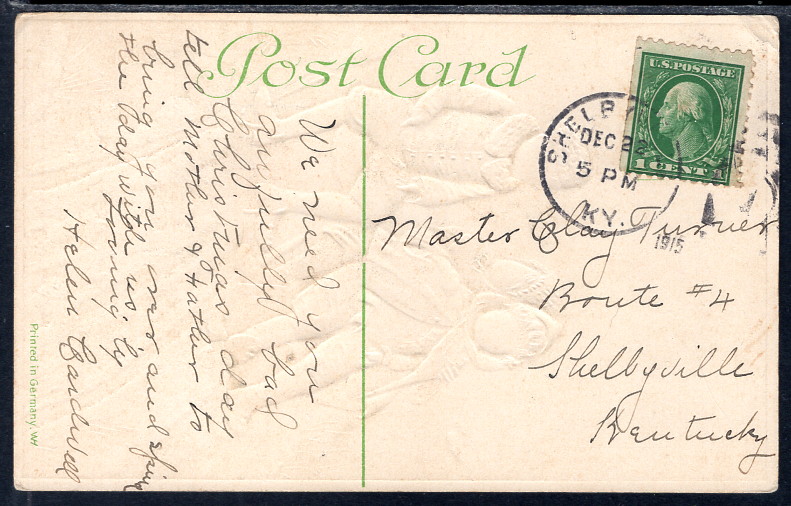 Post Card
We need you
awfully bad
Christmas day
tell Mother & Father to
bring you over and spend
the day with us.
Loving ly
Helen Cardwell
Printed in Germany.
U.S. POSTAGE
1 CENT 1
SHELBY
DEC 22
5 PM
KY.
1915
Master Clay Turner
Route #4
Shelbyville
Kentucky